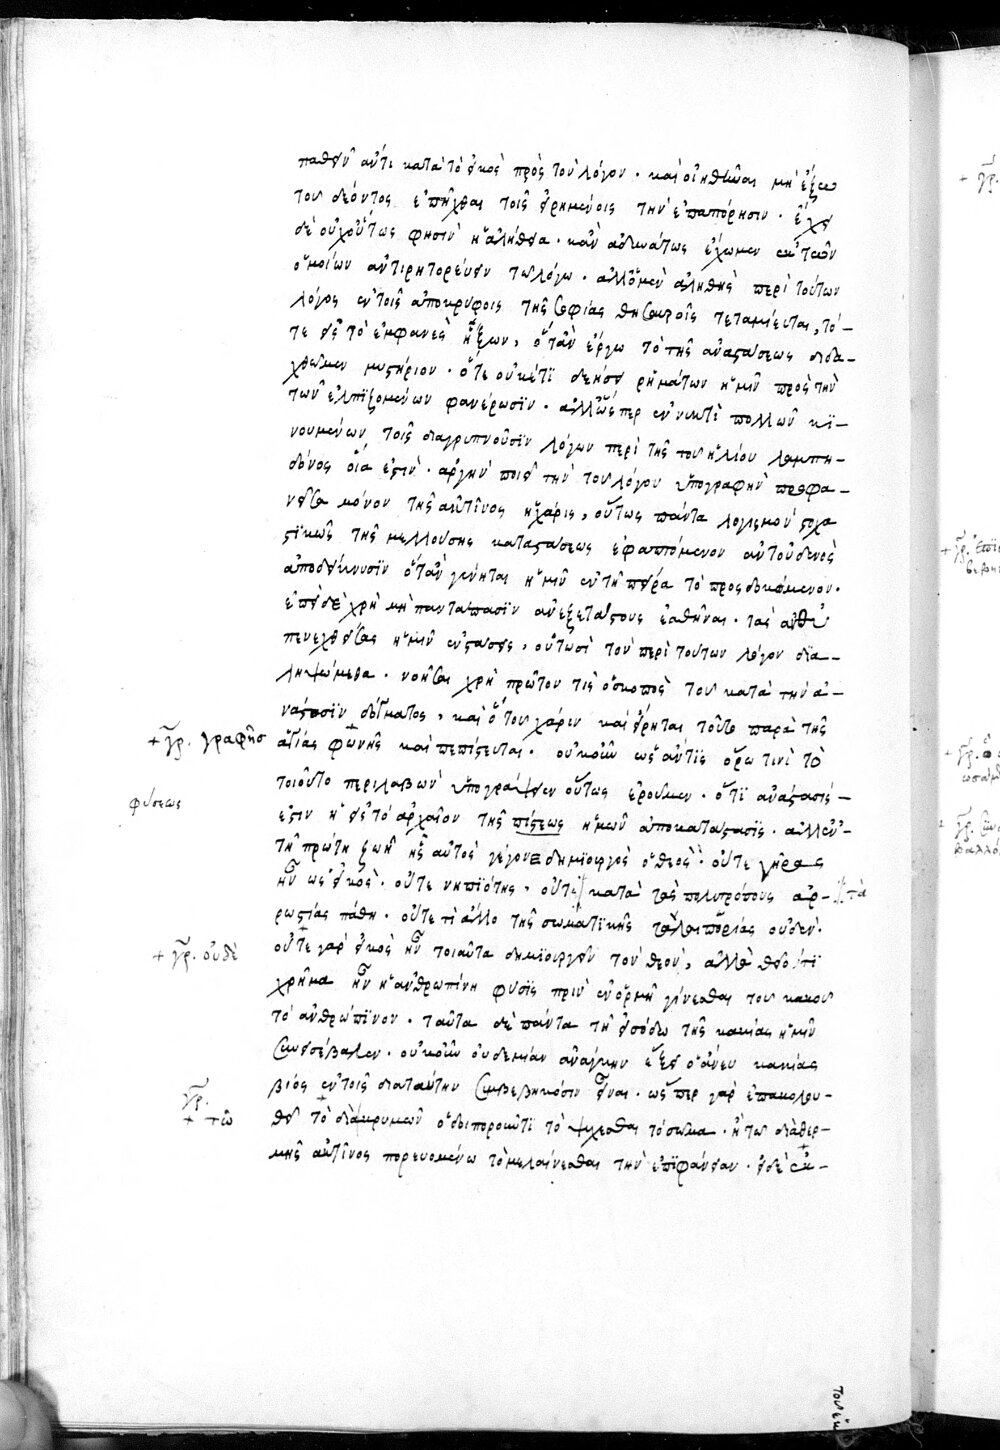 παθεῖν αὐτὴ κατὰ τὸ εἰκὸς πρὸς τὸν λόγον · καὶ οἰηθῆναι μὴ ἔξω
τοῦ δέοντος ἐπῆχθαι τοῖς εἰρημένοις τὴν ἐπαπόρησιν · ἔχει
δὲ οὐχ οὕτως φησὶν ἡ ἀλήθεια · κἂν ἀδυνάτως ἔχωμεν ἐκ τῶν
ὁμοίων ἀντιρητορεύειν τῷ λόγῳ · ἀλλ' ὁ μὲν ἀληθὴς περὶ τούτων
λόγος ἐν τοῖς ἀποκρύφοις τῆς σοφίας θησαυροῖς τεταμίευται, τό-
τε εἰς τὸ ἐμφανὲς ἥξων, ὅταν ἔργῳ τὸ τῆς ἀναστάσεως διδα-
χθῶμεν μυστήριον · ὅτε οὐκέτι δεήσει ῥημάτων ἡμῖν πρὸς τὴν
τῶν ἐλπιζομένων φανέρωσιν · ἀλλ' ὥσπερ ἐν νυκτὶ πολλῶν κι-
νουμένων τοῖς διαγρυπνοῦσιν λόγων περὶ τῆς τοῦ ἡλίου λαμπη-
δόνος οἵα ἐστὶν · ἀργὴν ποιεῖ τὴν τοῦ λόγου ὑπογραφὴν προφα-
νεῖσα μόνον τῆς ἀκτῖνος ἡ χάρις, οὕτως πάντα λογισμὸν στοχα
στικῶς τῆς μελλούσης καταστάσεως ἐφαπτόμενον ἀντ' οὐδενὸς
ἀποδείκνυσιν ὅταν γένηται ἡμῖν ἐν τῇ πείρᾳ τὸ προσδοκώμενον ·
ἐπειδὲ χρὴ μὴ παντάπασιν ἀνεξετάστους ἐαθῆναι · τὰς ἀνθυ
πενεχθείσας ἡμῖν ἐνστάσεις, οὑτωσὶ τὸν περὶ τούτων λόγον δια-
ληψώμεθα · νοῆσαι χρὴ πρῶτον τίς ὁ σκοπὸς τοῦ κατὰ τὴν ἀ-
νάστασιν δόγματος, καὶ ὅτου χάριν καὶ εἴρηται τοῦτο παρὰ τῆς
+ γρ. γραφῆς ἁγίας φωνῆς καὶ πεπίστευται · οὐκοῦν ὡς ἄν τις ὅρῳ τινὶ τὸ
τοιοῦτο περιλαβὼν ὑπογράψειεν οὕτως ἐροῦμεν · ὅτι ἀνάστασίς-
φύσεως ἐστιν ἡ εἰς τὸ ἀρχαῖον τῆς πίστεως ἡμῶν ἀποκατάστασις · ἀλλ' ἐν
τῇ πρώτῃ ζωῇ ἧς αὐτὸς γέγονε δημιουργὸς ὁ θεὸς · οὔτε γῆρας
ἦν ὡς εἰκὸς · οὔτε νηπιότης · οὔτε κατὰ τὰς πολυτρόπους ἀρ- τὰ
ρωστίας πάθη · οὔτε τὶ ἄλλο τῆς σωματικῆς ταλαιπωρίας οὐδέν ·
+ γρ. οὐδὲ οὔτε γὰρ εἰκὸς ἦν τοιαῦτα δημιουργεῖν τὸν θεὸν, ἀλλὰ θεῖόν τι
χρῆμα ἦν ἡ ἀνθρωπίνη φύσις πρὶν ἐν ὁρμῇ γίνεσθαι τοῦ κακοῦ
τὸ ἀνθρώπινον · ταῦτα δὲ πάντα τῇ εἰσόδῳ τῆς κακίας ἡμῖν
συνεισέβαλεν · οὐκοῦν οὐδεμίαν ἀνάγκην ἕξει ὁ ἄνευ κακίας
βίος ἐν τοῖς διὰ ταύτην συμβεβηκόσιν εἶναι · ὥσπερ γὰρ ἐπακολου-
γρ. + τῷ θεῖ τὸ διὰ κρυμῶν ὁδοιποροῦντι τὸ ψύχεσθαι τὸ σῶμα · ἢ τῷ διὰ θερ-
μῆς ἀκτῖνος πορευομένῳ τὸ μελαίνεσθαι τὴν ἐπιφάνειαν · εἰ δὲ ἐκ-